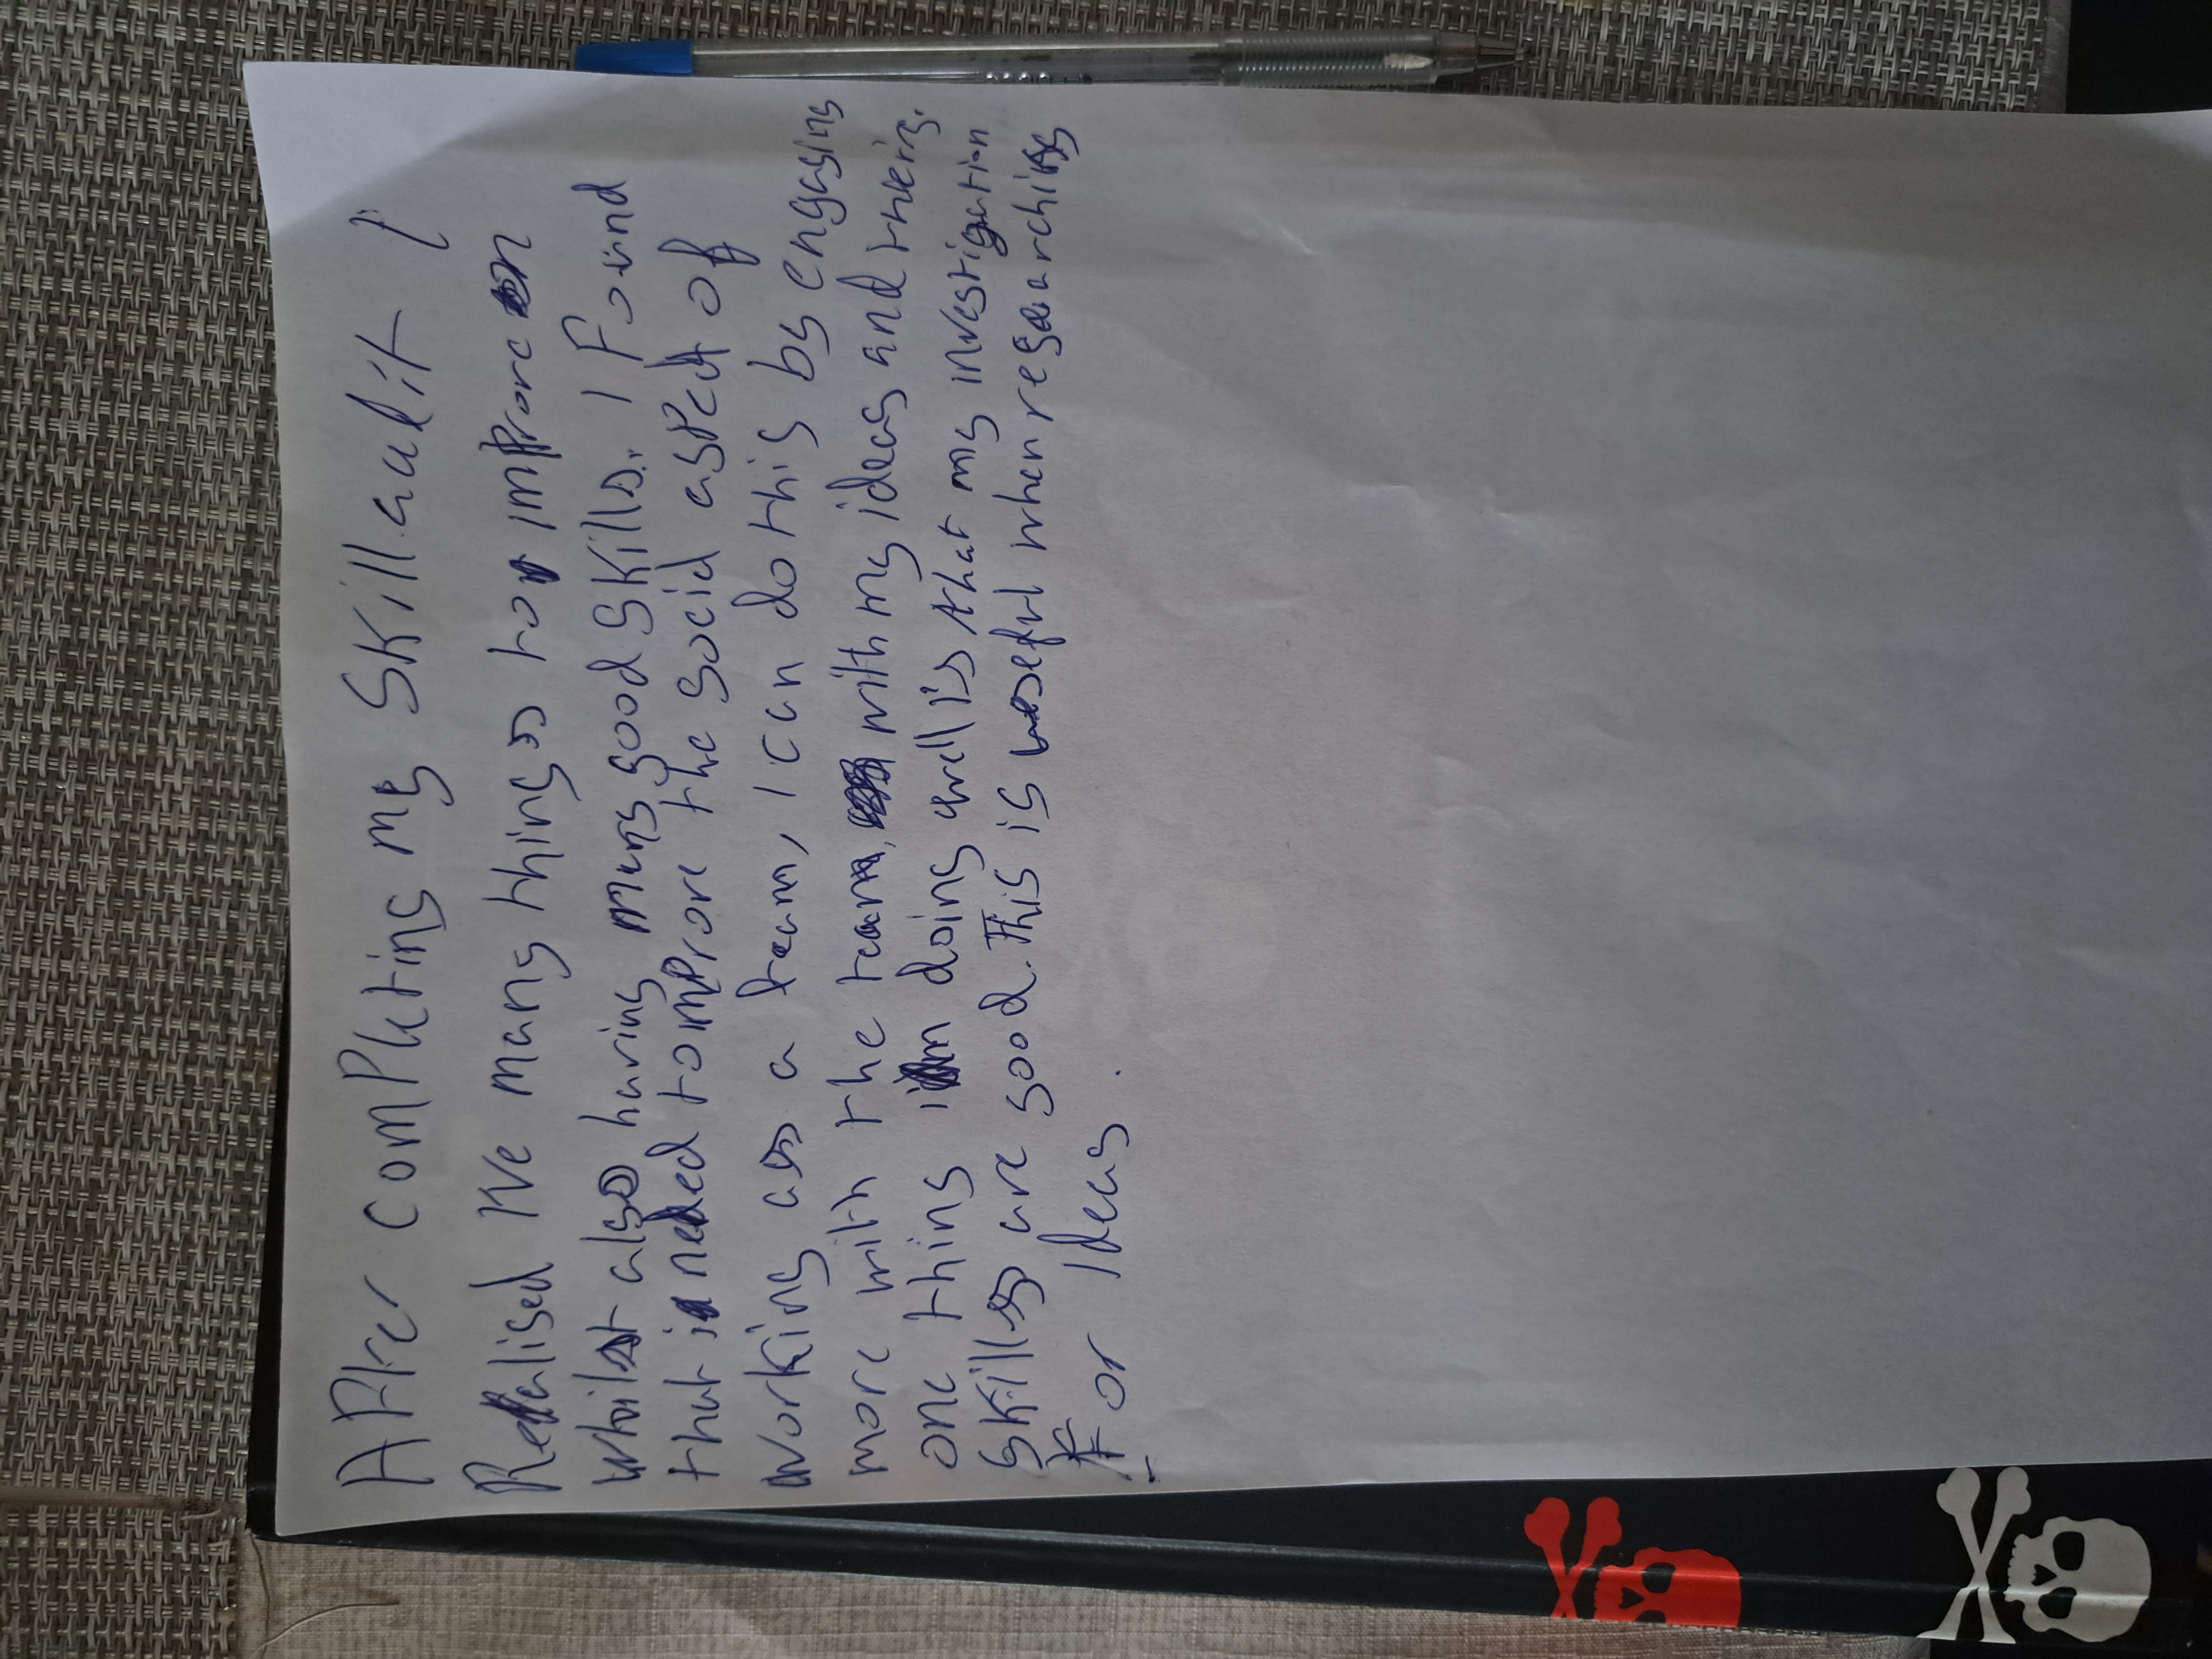 After completing my Skill audit I
Realised I've many things to improve on
whilst also having many good skills. I Found
that i needed to improve the social aspect of
working as a team, I can do this by engaging
more with the team, with my ideas and theirs.
one thing i'm doing well is that my investigation
skills are good. This is useful when researching
For Ideas.